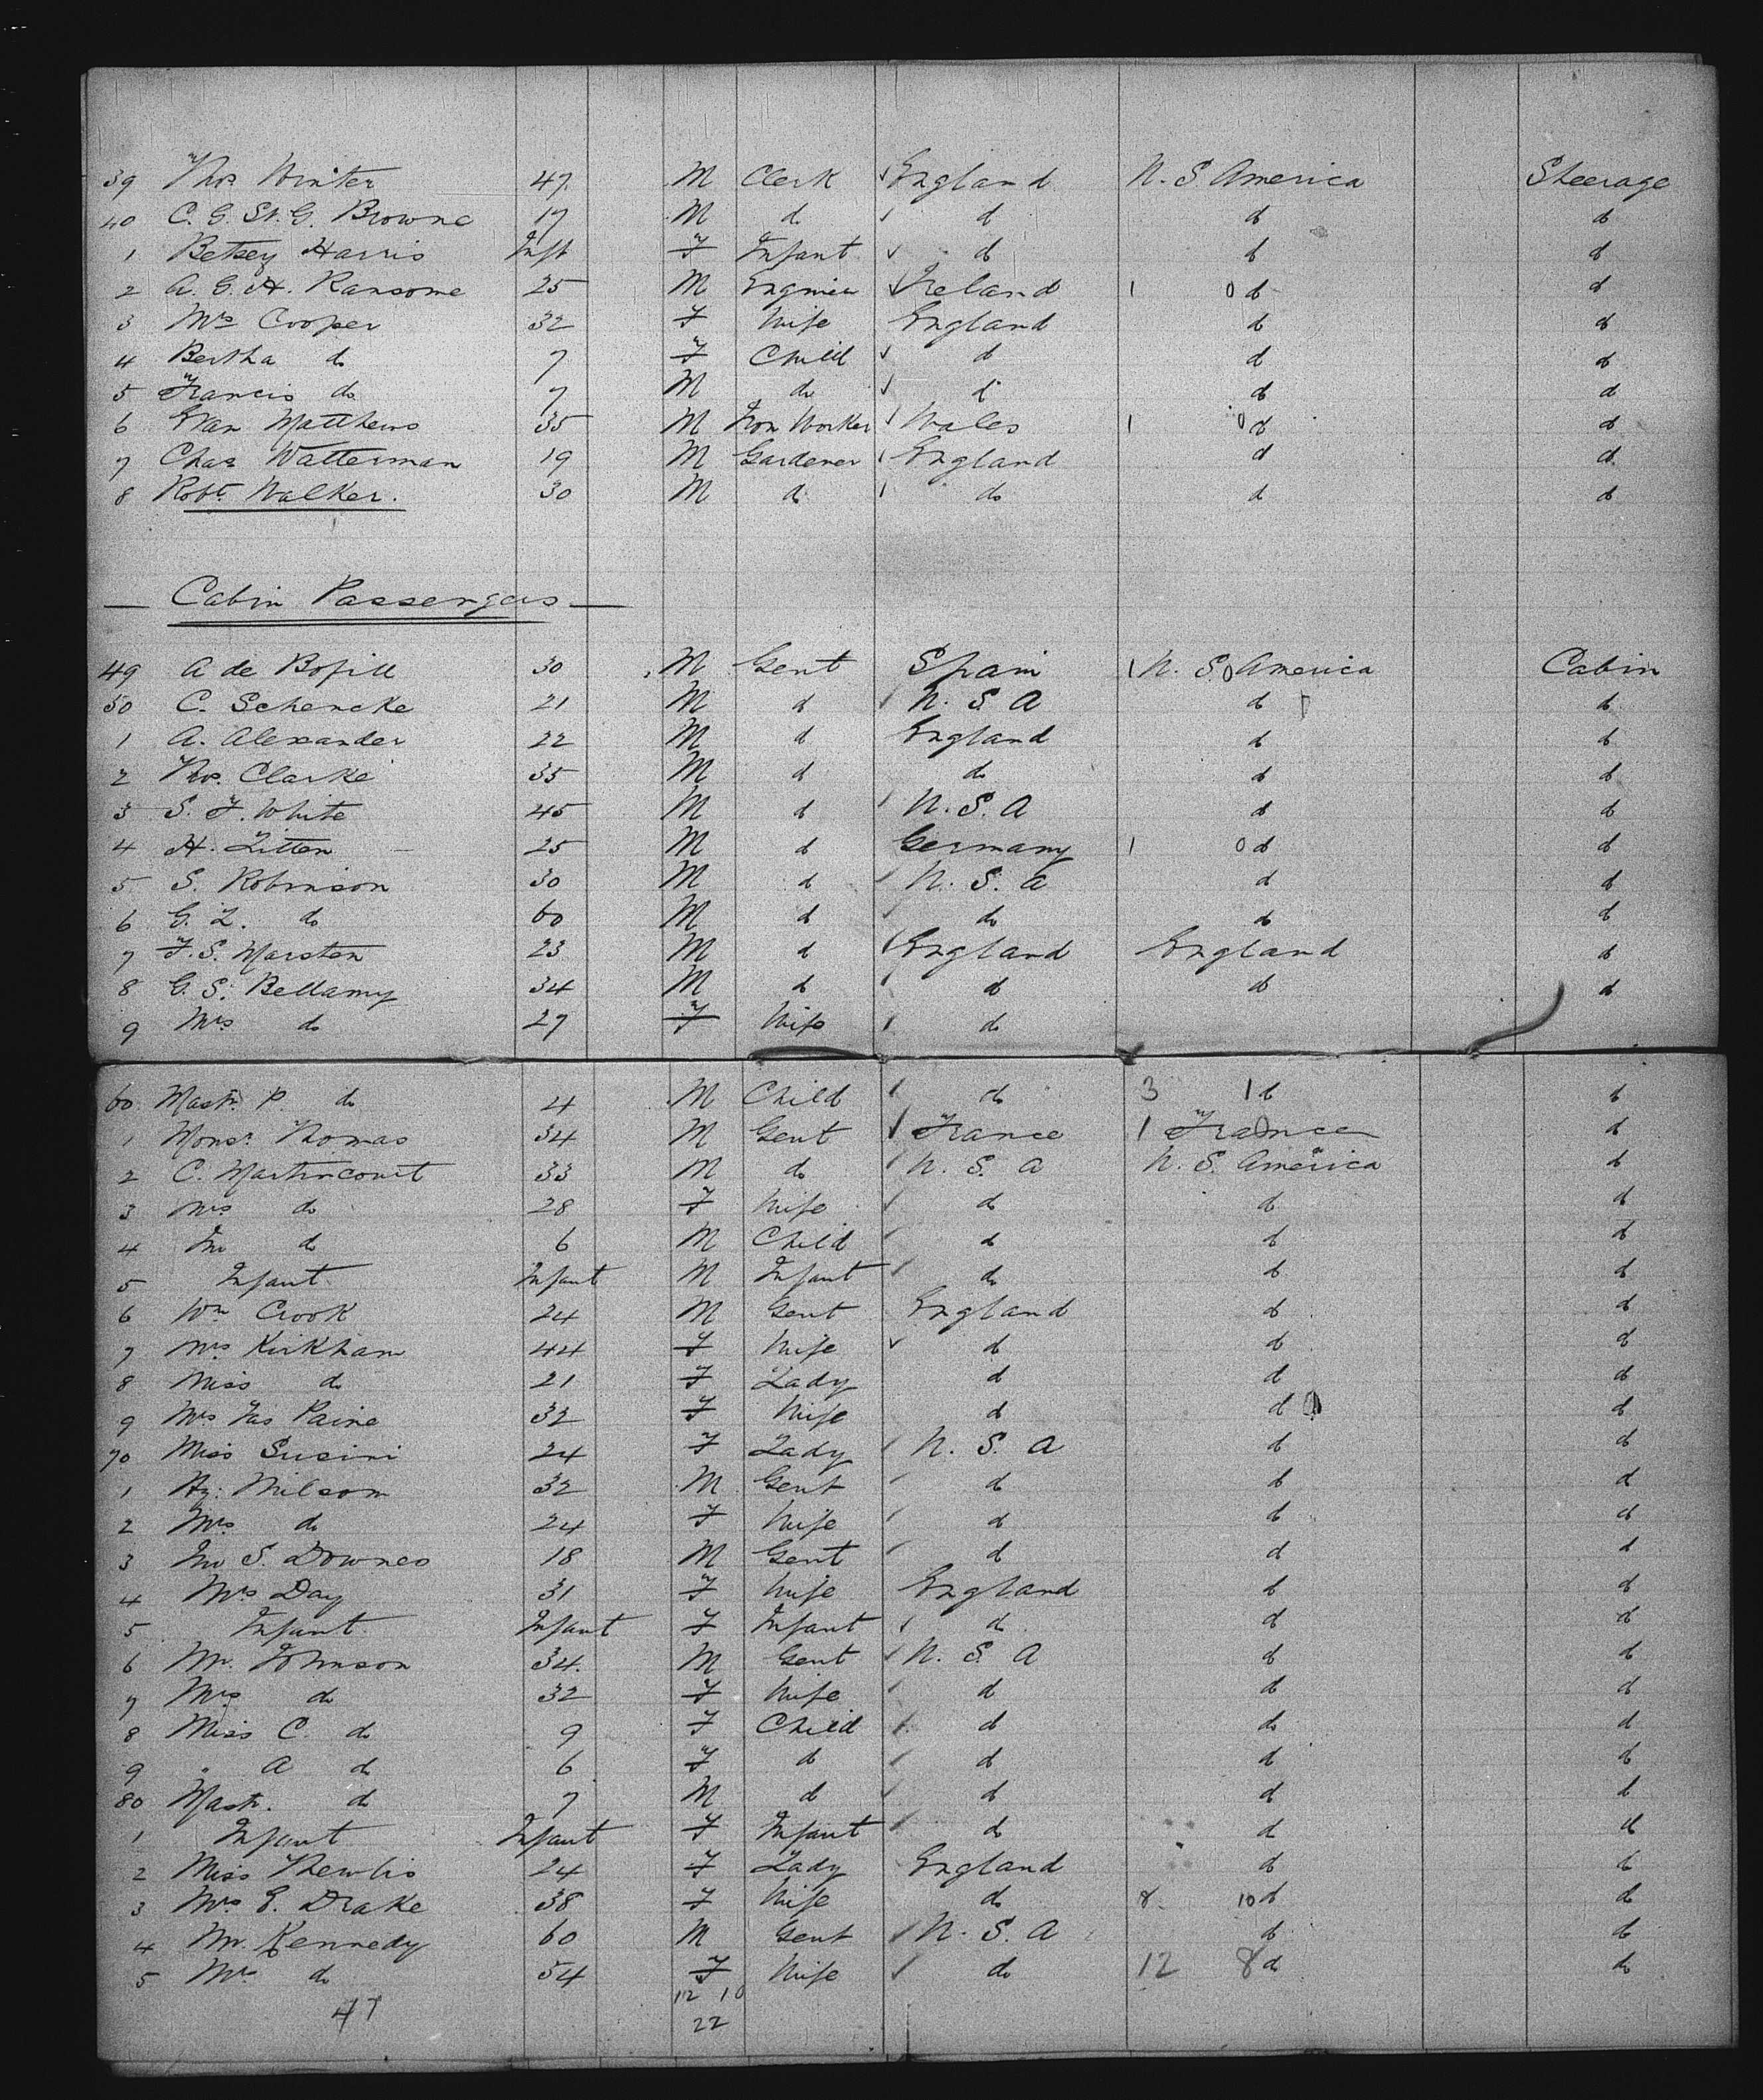 39 Thos Winter 47 M Clerk England U. S America Steerage
40 C. G. St. G. Browne 17 M do do do do
1 Betsey Harris Inft F Infant do do do
2 A. G. H. Ransome 25 M Engineer Ireland 1 0 do do
3 Mrs Cooper 32 F Wife England do do
4 Bertha do 7 F Child do do do
5 Francis do 7 M do do do do
6 Evan Matthews 35 M Iron Worker Wales 1 0 do do
7 Chas Watterman 19 M Gardener England do do
8 Robt Walker. 30 M do do do do
Cabin Passengers
49 A de Bofill 30 M Gent Spain 1 U. S. 0 America Cabin
50 C. Schencke 21 M do U. S. A do do
1 A. Alexander 22 M do England do do
2 Thos. Clarke 35 M do do do do
3 S. F. White 45 M do U. S. A do do
4 H. Litten 25 M do Germany 1 0 do do
5 S. Robinson 30 M do U. S. A do do
6 G. L. do 60 M do do do do
7 F. S. Marsten 23 M do England England do
8 G. S. Bellamy 34 M do do do do
9 Mrs do 27 F Wife do
60 Mastr. P. do 4 M Child do 3 1 do do
1 Monsr. Thomas 34 M Gent France 1 France do
2 C. Martincourt 33 M do U. S. A U. S. America do
3 Mrs do 28 F Wife do do do
4 Jno do 6 M Child do do do
5 Infant Infant M Infant do do do
6 Wm Crook 24 M Gent England do do
7 Mrs Kirkham 44 F Wife do do do
8 Miss do 21 F Lady do do do
9 Mrs Jas Paine 32 F Wife do do do
70 Miss Susini 24 F Lady U. S. A do do
1 Hy: Wilson 32 M Gent do do do
2 Mrs do 24 F Wife do do do
3 Jno S. Downes 18 M Gent do do do
4 Mrs Day 31 F Wife England do do
5 Infant Infant F Infant do do do
6 Mr. Johnson 34. M Gent U. S. A do do
7 Mrs do 32 F Wife do do do
8 Miss C. do 9 F Child do do do
9 " A do 6 F do do do do
80 Mastr. do 7 M do do do do
1 Infant Infant F Infant do do do
2 Miss Thewlis 24 F Lady England do do
3 Mrs E. Drake 38 F Wife do 8 10 do do
4 Mr. Kennedy 60 M Gent U. S. A do do
5 Mrs do 54 F Wife do 12 8 do do
12 10
47 22